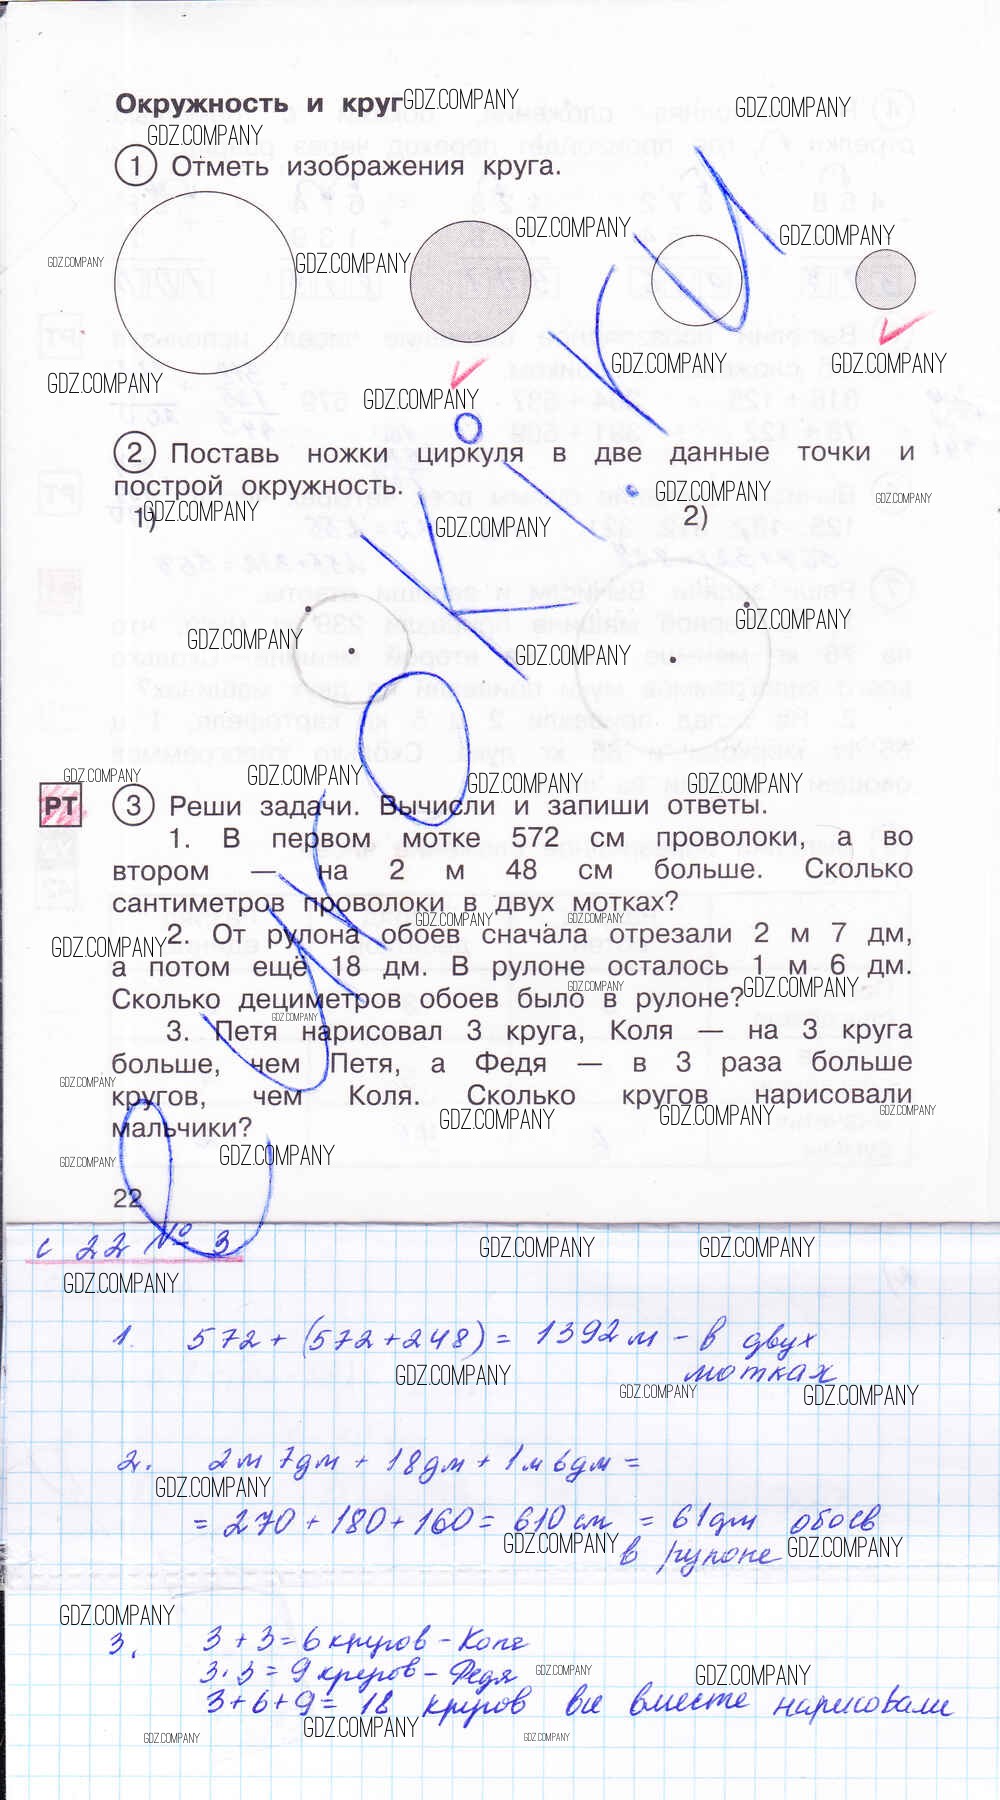 Окружность и круг
1 Отметь изображения круга.
2 Поставь ножки циркуля в две данные точки и
построй окружность.
1)
2)
РТ
3 Реши задачи. Вычисли и запиши ответы.
1. В первом мотке 572 см проволоки, а во
втором — на 2 м 48 см больше. Сколько
сантиметров проволоки в двух мотках?
2. От рулона обоев сначала отрезали 2 м 7 дм,
а потом ещё 18 дм. В рулоне осталось 1 м 6 дм.
Сколько дециметров обоев было в рулоне?
3. Петя нарисовал 3 круга, Коля — на 3 круга
больше, чем Петя, а Федя — в 3 раза больше
кругов, чем Коля. Сколько кругов нарисовали
мальчики?
22
с 22 № 3
1. 572 + (572+248) = 1392 м - в двух
мотках
2. 2м 7дм + 18дм + 1м 6дм =
= 270 + 180 + 160 = 610 см = 61 дм обоев
в рулоне
3. 3 + 3 = 6 кругов - Коля
3·3 = 9 кругов - Федя
3+6+9 = 18 кругов все вместе нарисовали
GDZ.COMPANY